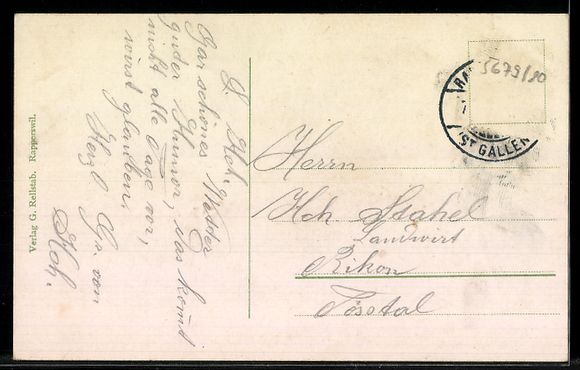 L. Hch.
Gar schönes Wetter
guder Humor, das kommt
nicht alle Tage vor,
wirst glauben.
Herzl Gr. von
Hch.
Verlag G. Rellstab. Rapperswil.
5679/20
ST GALLEN
Herrn
Hch Stahel
Landwirt
Rikon
Tösstal